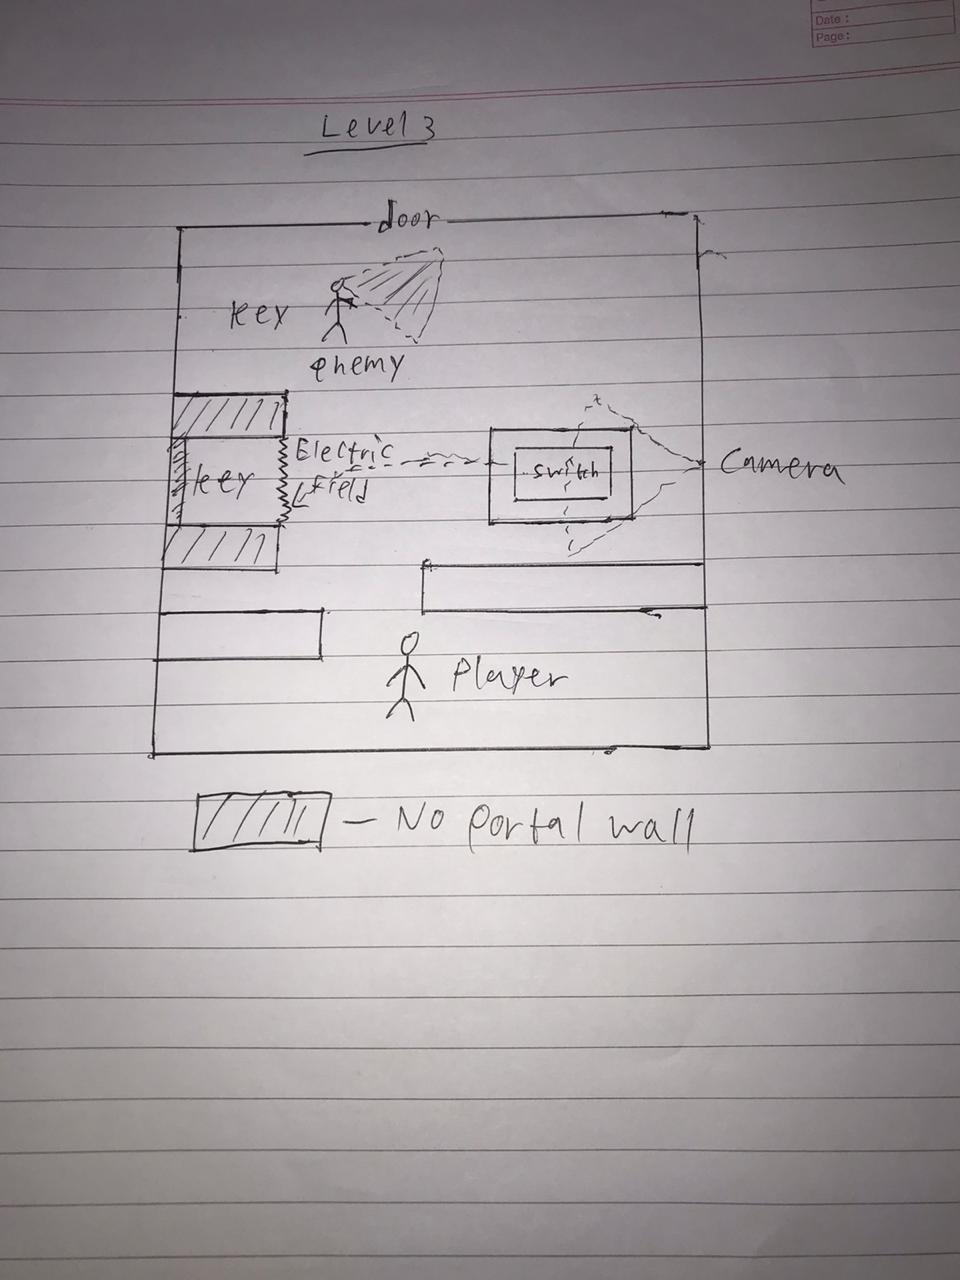 Date :
Page :
Level 3
door
key
enemy
Electric
field
key
switch
Camera
Player
— No portal wall